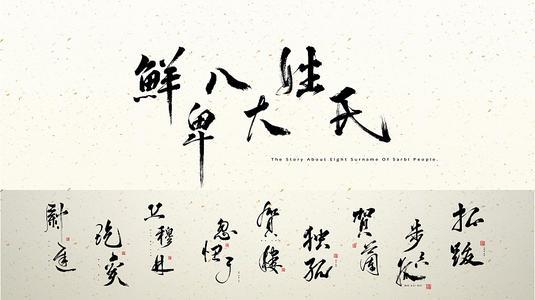 鮮卑八大姓氏
The Story About Eight Surname Of Sarbi People.
尉迟
纥奚
丘穆林
忽忸于
賀樓
独孤
賀蘭
步六孤
拓跋